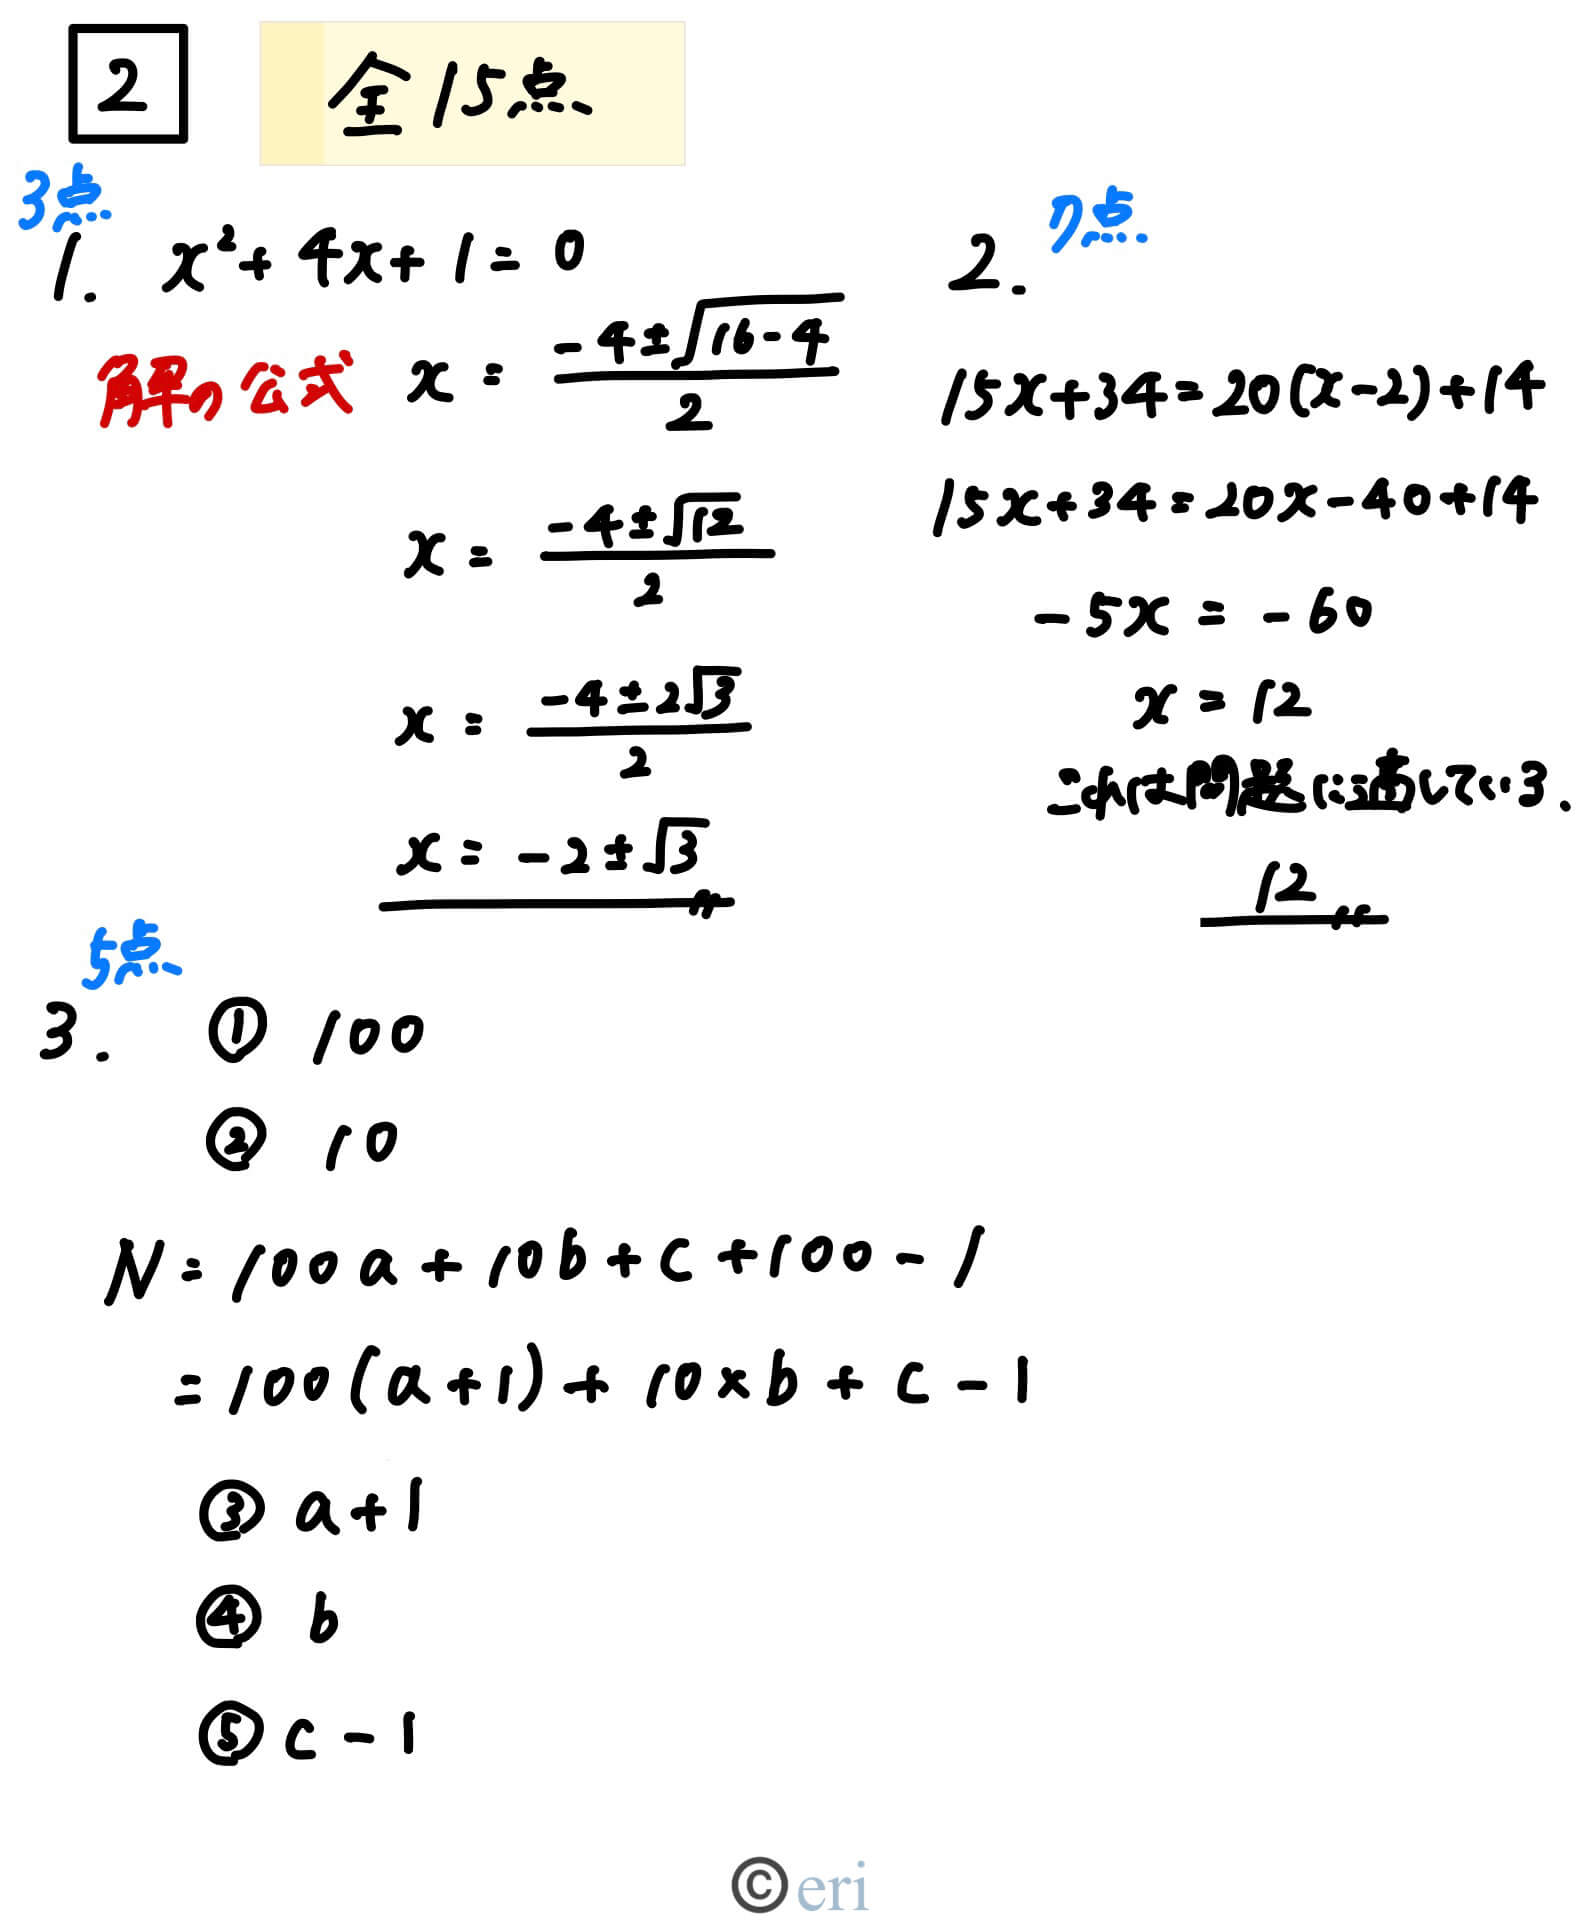 2 全15点
3点
1. x²+4x+1=0
解の公式 x = (-4±√(16-4))/2
x = (-4±√12)/2
x = (-4±2√3)/2
x = -2±√3
7点
2.
15x+34=20(x-2)+14
15x+34=20x-40+14
-5x = -60
x = 12
これは問題に適している.
12
5点
3. ① 100
② 10
N=100a+10b+c+100-1
=100(a+1)+10×b+c-1
③ a+1
④ b
⑤ c-1
© eri